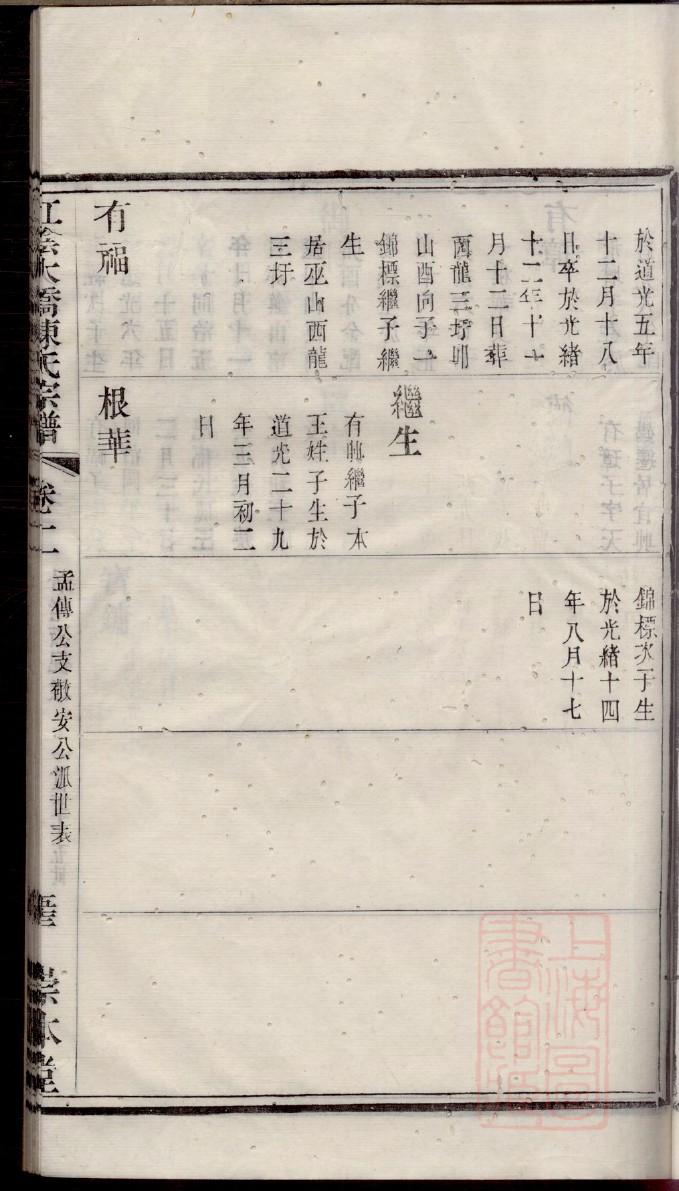 於道光五年
十二月十八
日卒於光緒
十二年十一
月十二日葬
西龍三圩卯
山酉向子一
錦標繼子繼
生
居巫山西龍
三圩
有福
繼生
有 繼子本
王姓子生於
道光二十九
年三月初二
日
根華
錦標次子生
於光緒十四
年八月十七
日
江陰大橋陳氏宗譜
卷十一
孟傳公支敬安公派世表
崇本堂
上海圖書館藏